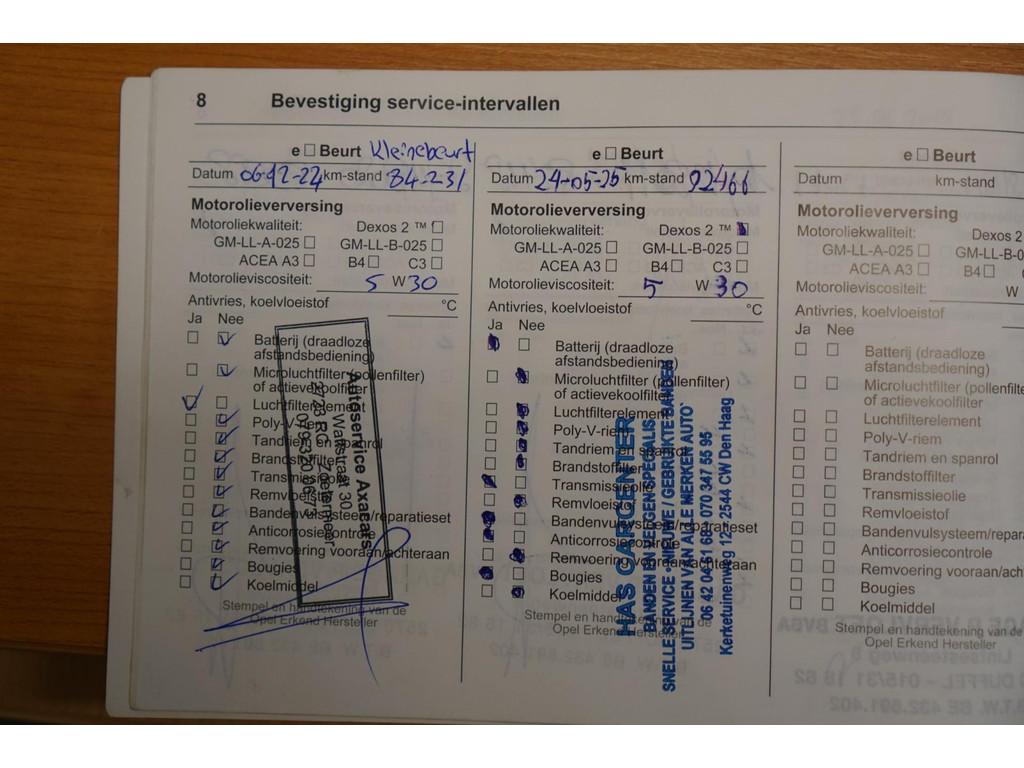 8 Bevestiging service-intervallen
e □ Beurt Kleinebeurt
Datum 06-12-22 km-stand 84-231
Motorolieverversing
Motoroliekwaliteit: Dexos 2 ™ □
GM-LL-A-025 □ GM-LL-B-025 □
ACEA A3 □ B4 □ C3 □
Motorolieviscositeit: 5 W 30
Antivries, koelvloeistof °C
Ja Nee
Batterij (draadloze
afstandsbediening)
Microluchtfilter (pollenfilter)
of actievekoolfilter
Luchtfilterelement
Poly-V-riem
Tandriem en spanrol
Brandstoffilter
Transmissieolie
Remvloeistof
Bandenvulsysteem/reparatieset
Anticorrosiecontrole
Remvoering vooraan/achteraan
Bougies
Koelmiddel
Stempel en handtekening van de
Opel Erkend Hersteller
Autoservice Axacars
Walstraat 30
Zoetermeer
e □ Beurt
Datum 24-05-25 km-stand 92466
Motorolieverversing
Motoroliekwaliteit: Dexos 2 ™
GM-LL-A-025 □ GM-LL-B-025 □
ACEA A3 □ B4 □ C3 □
Motorolieviscositeit: 5 W 30
Antivries, koelvloeistof °C
Ja Nee
Batterij (draadloze
afstandsbediening)
Microluchtfilter (pollenfilter)
of actievekoolfilter
Luchtfilterelement
Poly-V-riem
Tandriem en spanrol
Brandstoffilter
Transmissieolie
Remvloeistof
Bandenvulsysteem/reparatieset
Anticorrosiecontrole
Remvoering vooraan/achteraan
Bougies
Koelmiddel
Stempel en handtekening van de
Opel Erkend Hersteller
HAS CARCENTER
BANDEN EN VELGEN SPECIALIS
SNELLE SERVICE °NIEUWE / GEBRUIKTE BANDEN
UITLIJNEN VAN ALLE MERKEN AUTO`
06 42 04 61 68 070 347 55 95
Kerketuinenweg 12, 2544 CW Den Haag
e □ Beurt
Datum km-stand
Motorolieverversing
Motoroliekwaliteit: Dexos 2
GM-LL-A-025 □ GM-LL-B-0
ACEA A3 □ B4 □
Motorolieviscositeit: W
Antivries, koelvloeistof
Ja Nee
Batterij (draadloze
afstandsbediening)
Microluchtfilter (pollenfilte
of actievekoolfilter
Luchtfilterelement
Poly-V-riem
Tandriem en spanrol
Brandstoffilter
Transmissieolie
Remvloeistof
Bandenvulsysteem/repara
Anticorrosiecontrole
Remvoering vooraan/acht
Bougies
Koelmiddel
Stempel en handtekening van de
Opel Erkend Hersteller